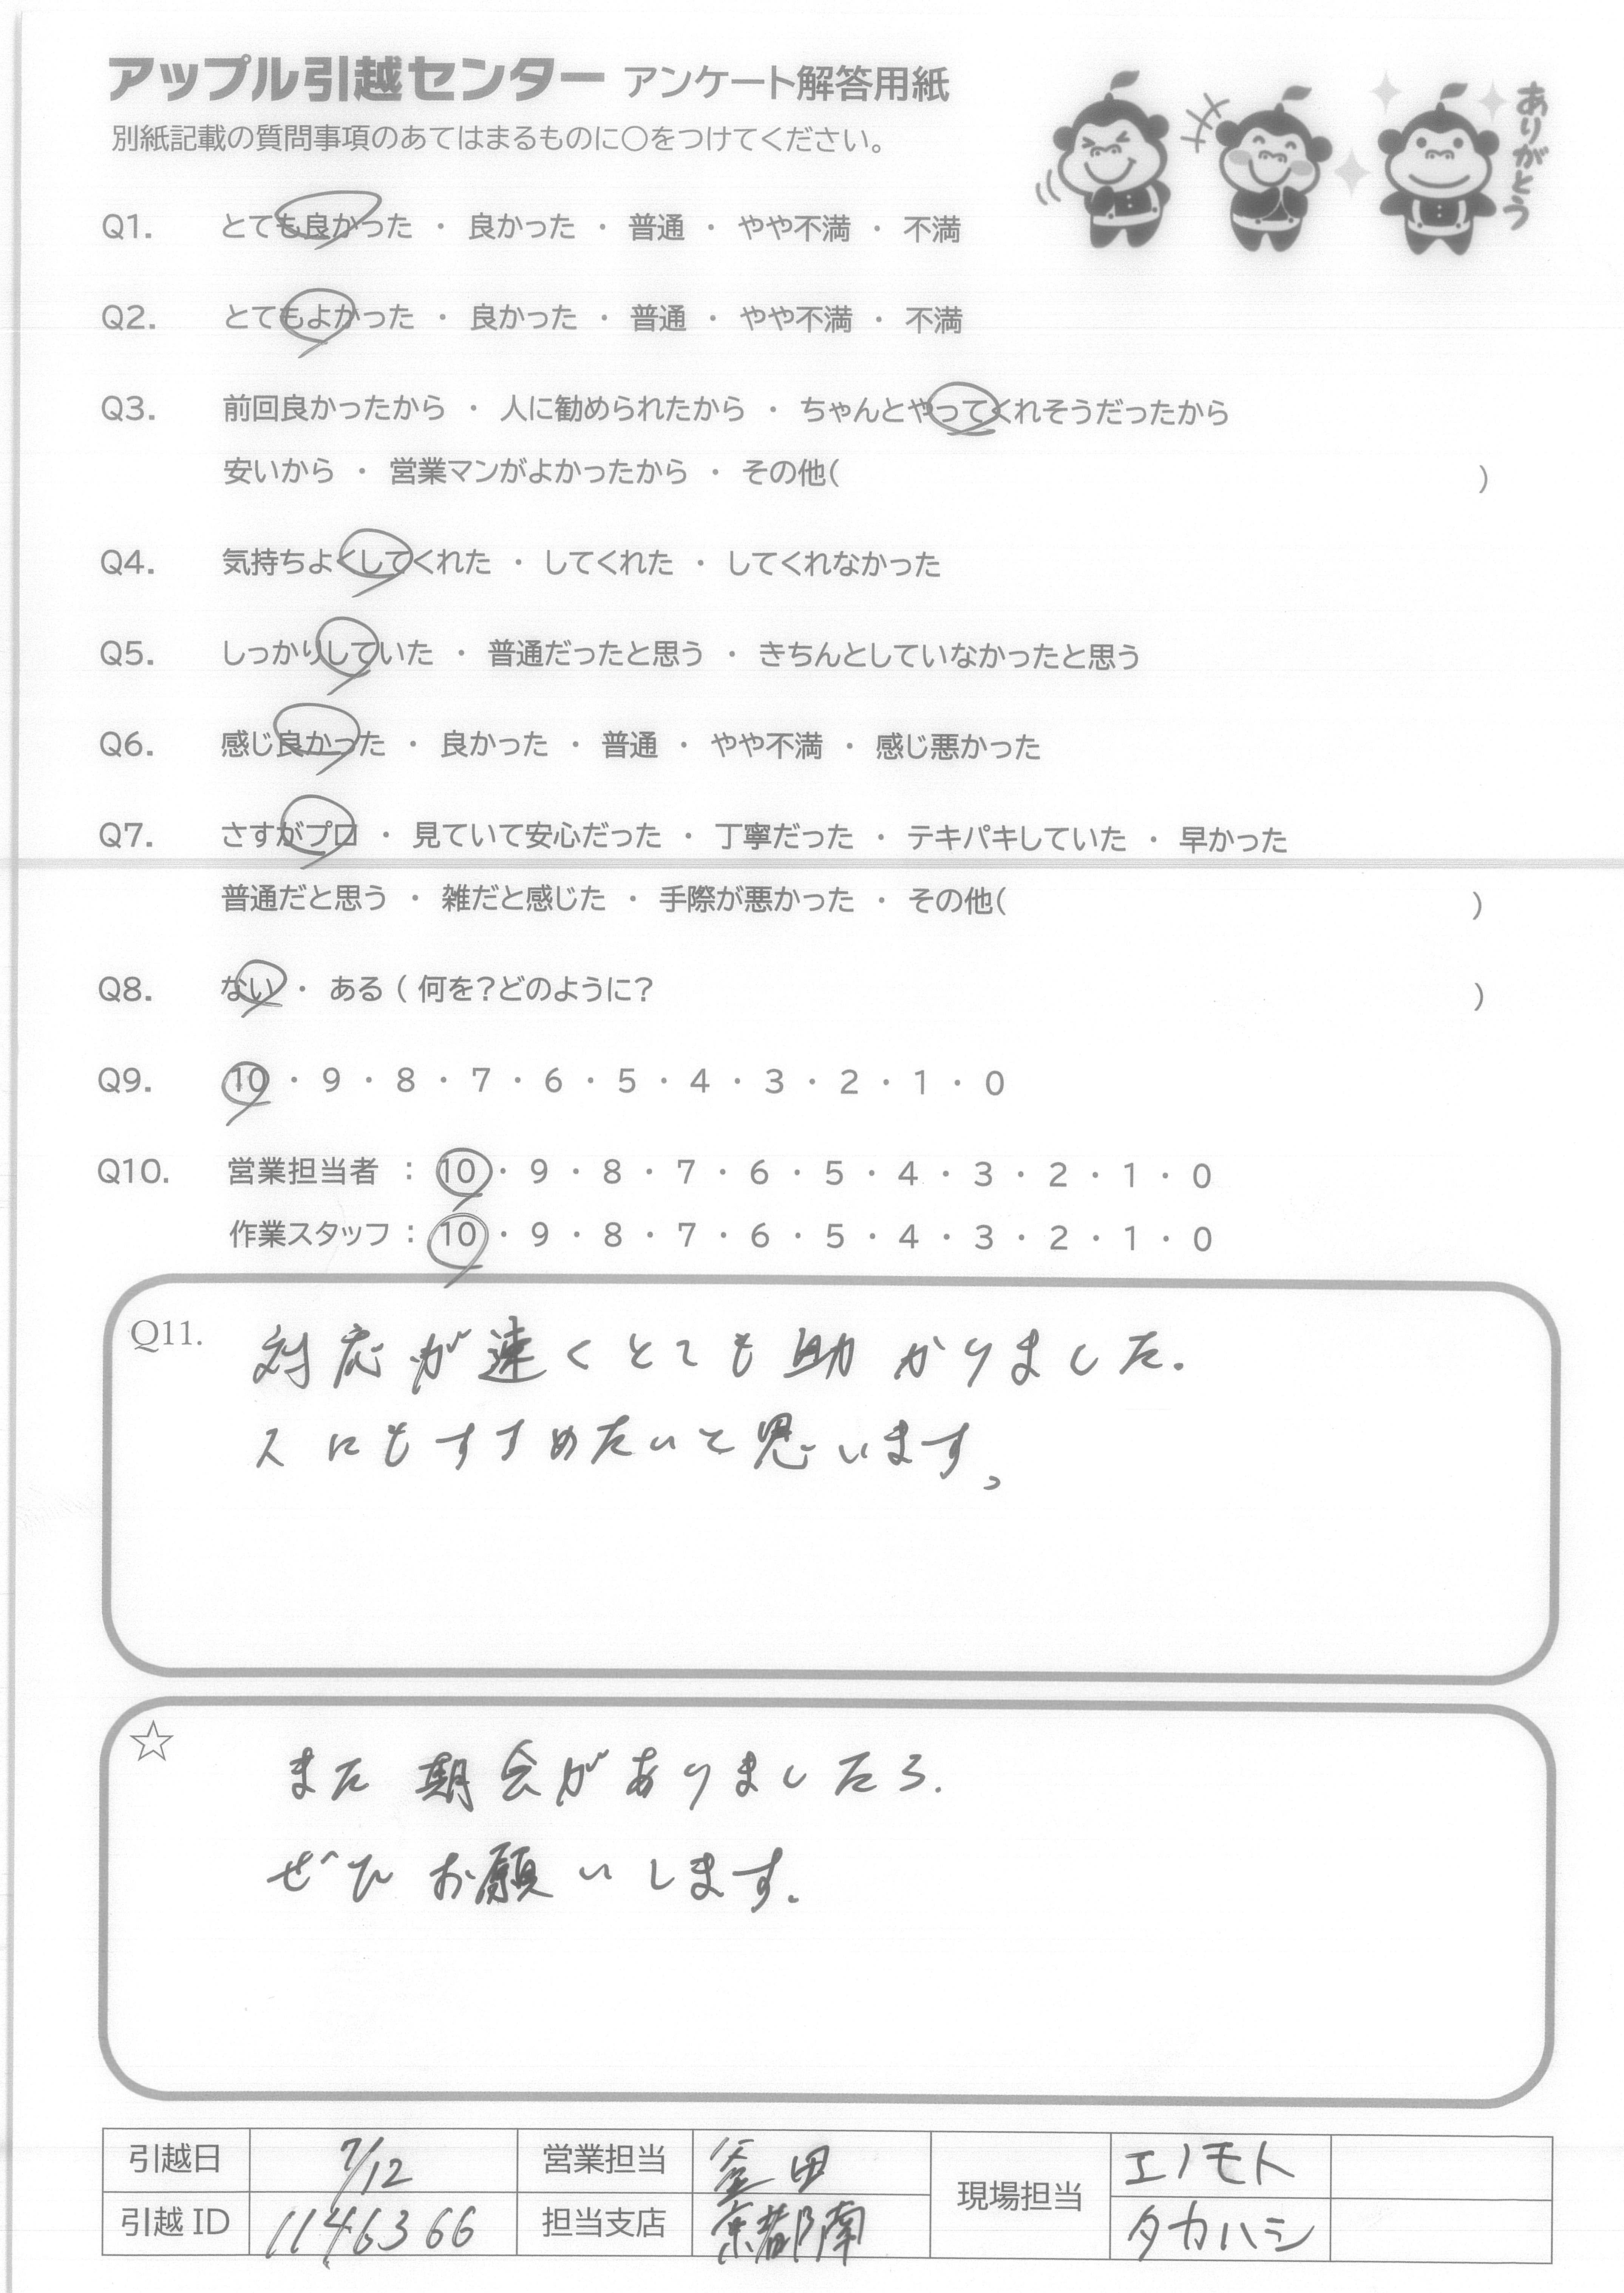 アップル引越センター アンケート解答用紙
別紙記載の質問事項のあてはまるものに〇をつけてください。
ありがとう
Q1. とても良かった ・ 良かった ・ 普通 ・ やや不満 ・ 不満
Q2. とてもよかった ・ 良かった ・ 普通 ・ やや不満 ・ 不満
Q3. 前回良かったから ・ 人に勧められたから ・ ちゃんとやってくれそうだったから
安いから ・ 営業マンがよかったから ・ その他( )
Q4. 気持ちよくしてくれた ・ してくれた ・ してくれなかった
Q5. しっかりしていた ・ 普通だったと思う ・ きちんとしていなかったと思う
Q6. 感じ良かった ・ 良かった ・ 普通 ・ やや不満 ・ 感じ悪かった
Q7. さすがプロ ・ 見ていて安心だった ・ 丁寧だった ・ テキパキしていた ・ 早かった
普通だと思う ・ 雑だと感じた ・ 手際が悪かった ・ その他( )
Q8. ない ・ ある ( 何を?どのように? )
Q9. 10 ・ 9 ・ 8 ・ 7 ・ 6 ・ 5 ・ 4 ・ 3 ・ 2 ・ 1 ・ 0
Q10. 営業担当者 : 10 ・ 9 ・ 8 ・ 7 ・ 6 ・ 5 ・ 4 ・ 3 ・ 2 ・ 1 ・ 0
作業スタッフ : 10 ・ 9 ・ 8 ・ 7 ・ 6 ・ 5 ・ 4 ・ 3 ・ 2 ・ 1 ・ 0
Q11. 対応が速くとても助かりました.
人にもすすめたいと思います。
☆ また期会がありましたら.
ぜひお願いします.
引越日 7/12 営業担当 釜田 現場担当 エノモト
引越ID 1146366 担当支店 京都南 タカハシ